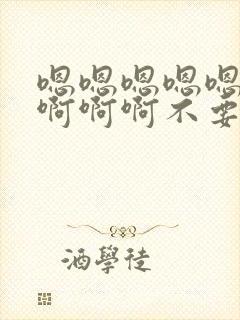 嗯嗯嗯嗯嗯
啊啊啊不要
酒學徒